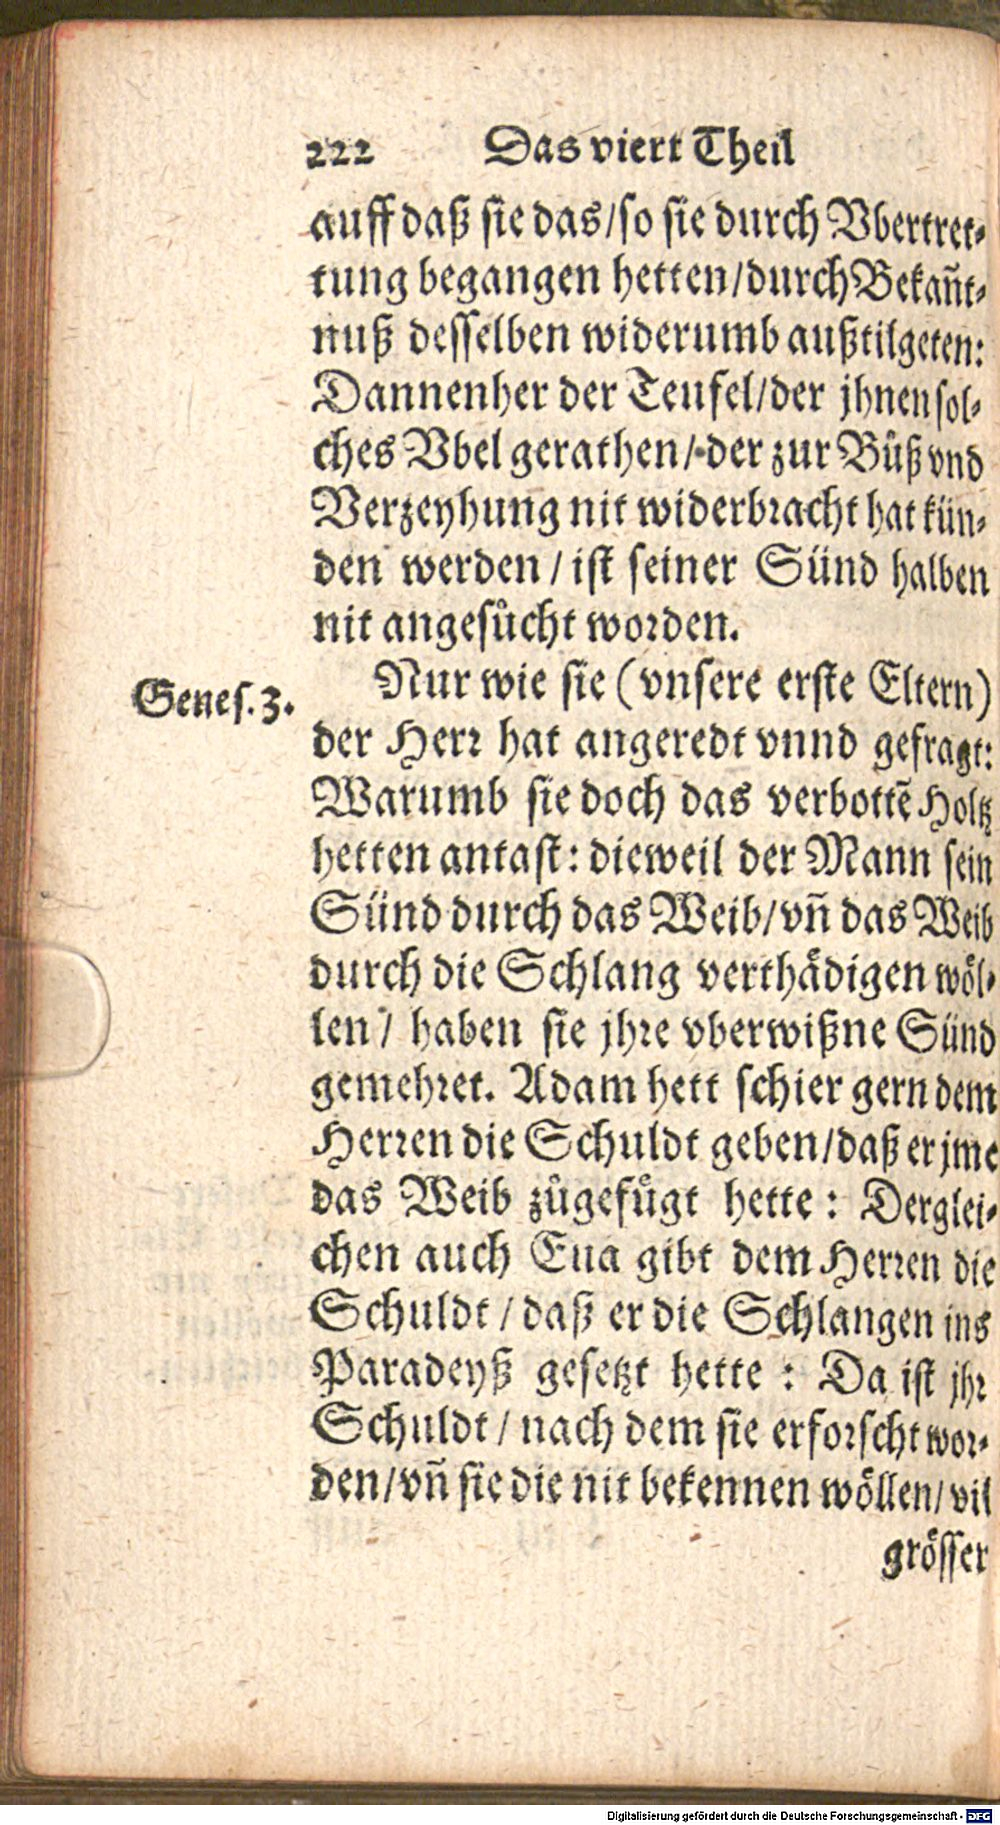 222 Das viert Theil
auff daß sie das/so sie durch Vbertret-
tung begangen hetten/durch Bekañt-
nuß desselben widerumb außtilgeten:
Dannenher der Teufel/der jhnen sol-
ches Vbel gerathen/der zur Bůß vnd
Verzeyhung nit widerbracht hat kün-
den werden/ist seiner Sünd halben
nit angesůcht worden.
Nur wie sie (vnsere erste Eltern)
Genes. 3.
der Herr hat angeredt vnnd gefragt:
Warumb sie doch das verbottẽ Holtz
hetten antast: dieweil der Mann sein
Sünd durch das Weib/vñ das Weib
durch die Schlang verthädigen wöl-
len/ haben sie jhre vberwißne Sünd
gemehret. Adam hett schier gern dem
Herren die Schuldt geben/daß er jme
das Weib zůgefůgt hette: Derglei-
chen auch Eua gibt dem Herren die
Schuldt/daß er die Schlangen ins
Paradeyß gesetzt hette: Da ist jhr
Schuldt/nach dem sie erforscht wor-
den/vñ sie die nit bekennen wöllen/vil
grösser
Digitalisierung gefördert durch die Deutsche Forschungsgemeinschaft - DFG